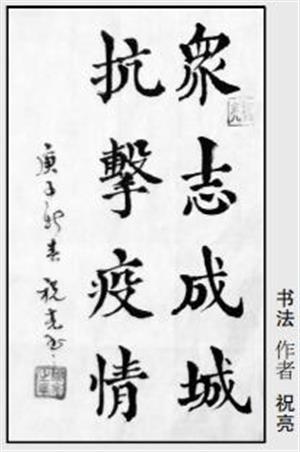 眾志成城
抗擊疫情
庚子新春 祝亮书
书法 作者 祝亮